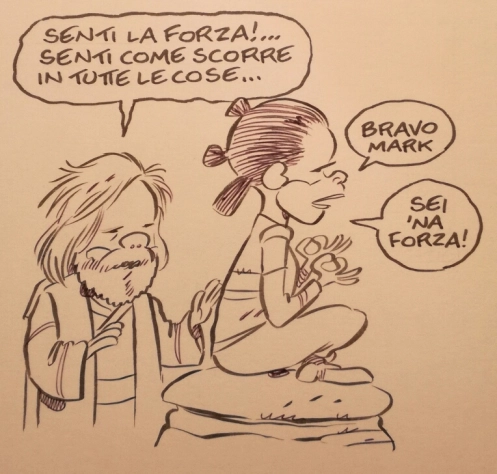 SENTI LA FORZA!...
SENTI COME SCORRE
IN TUTTE LE COSE...
BRAVO
MARK
SEI
'NA
FORZA!